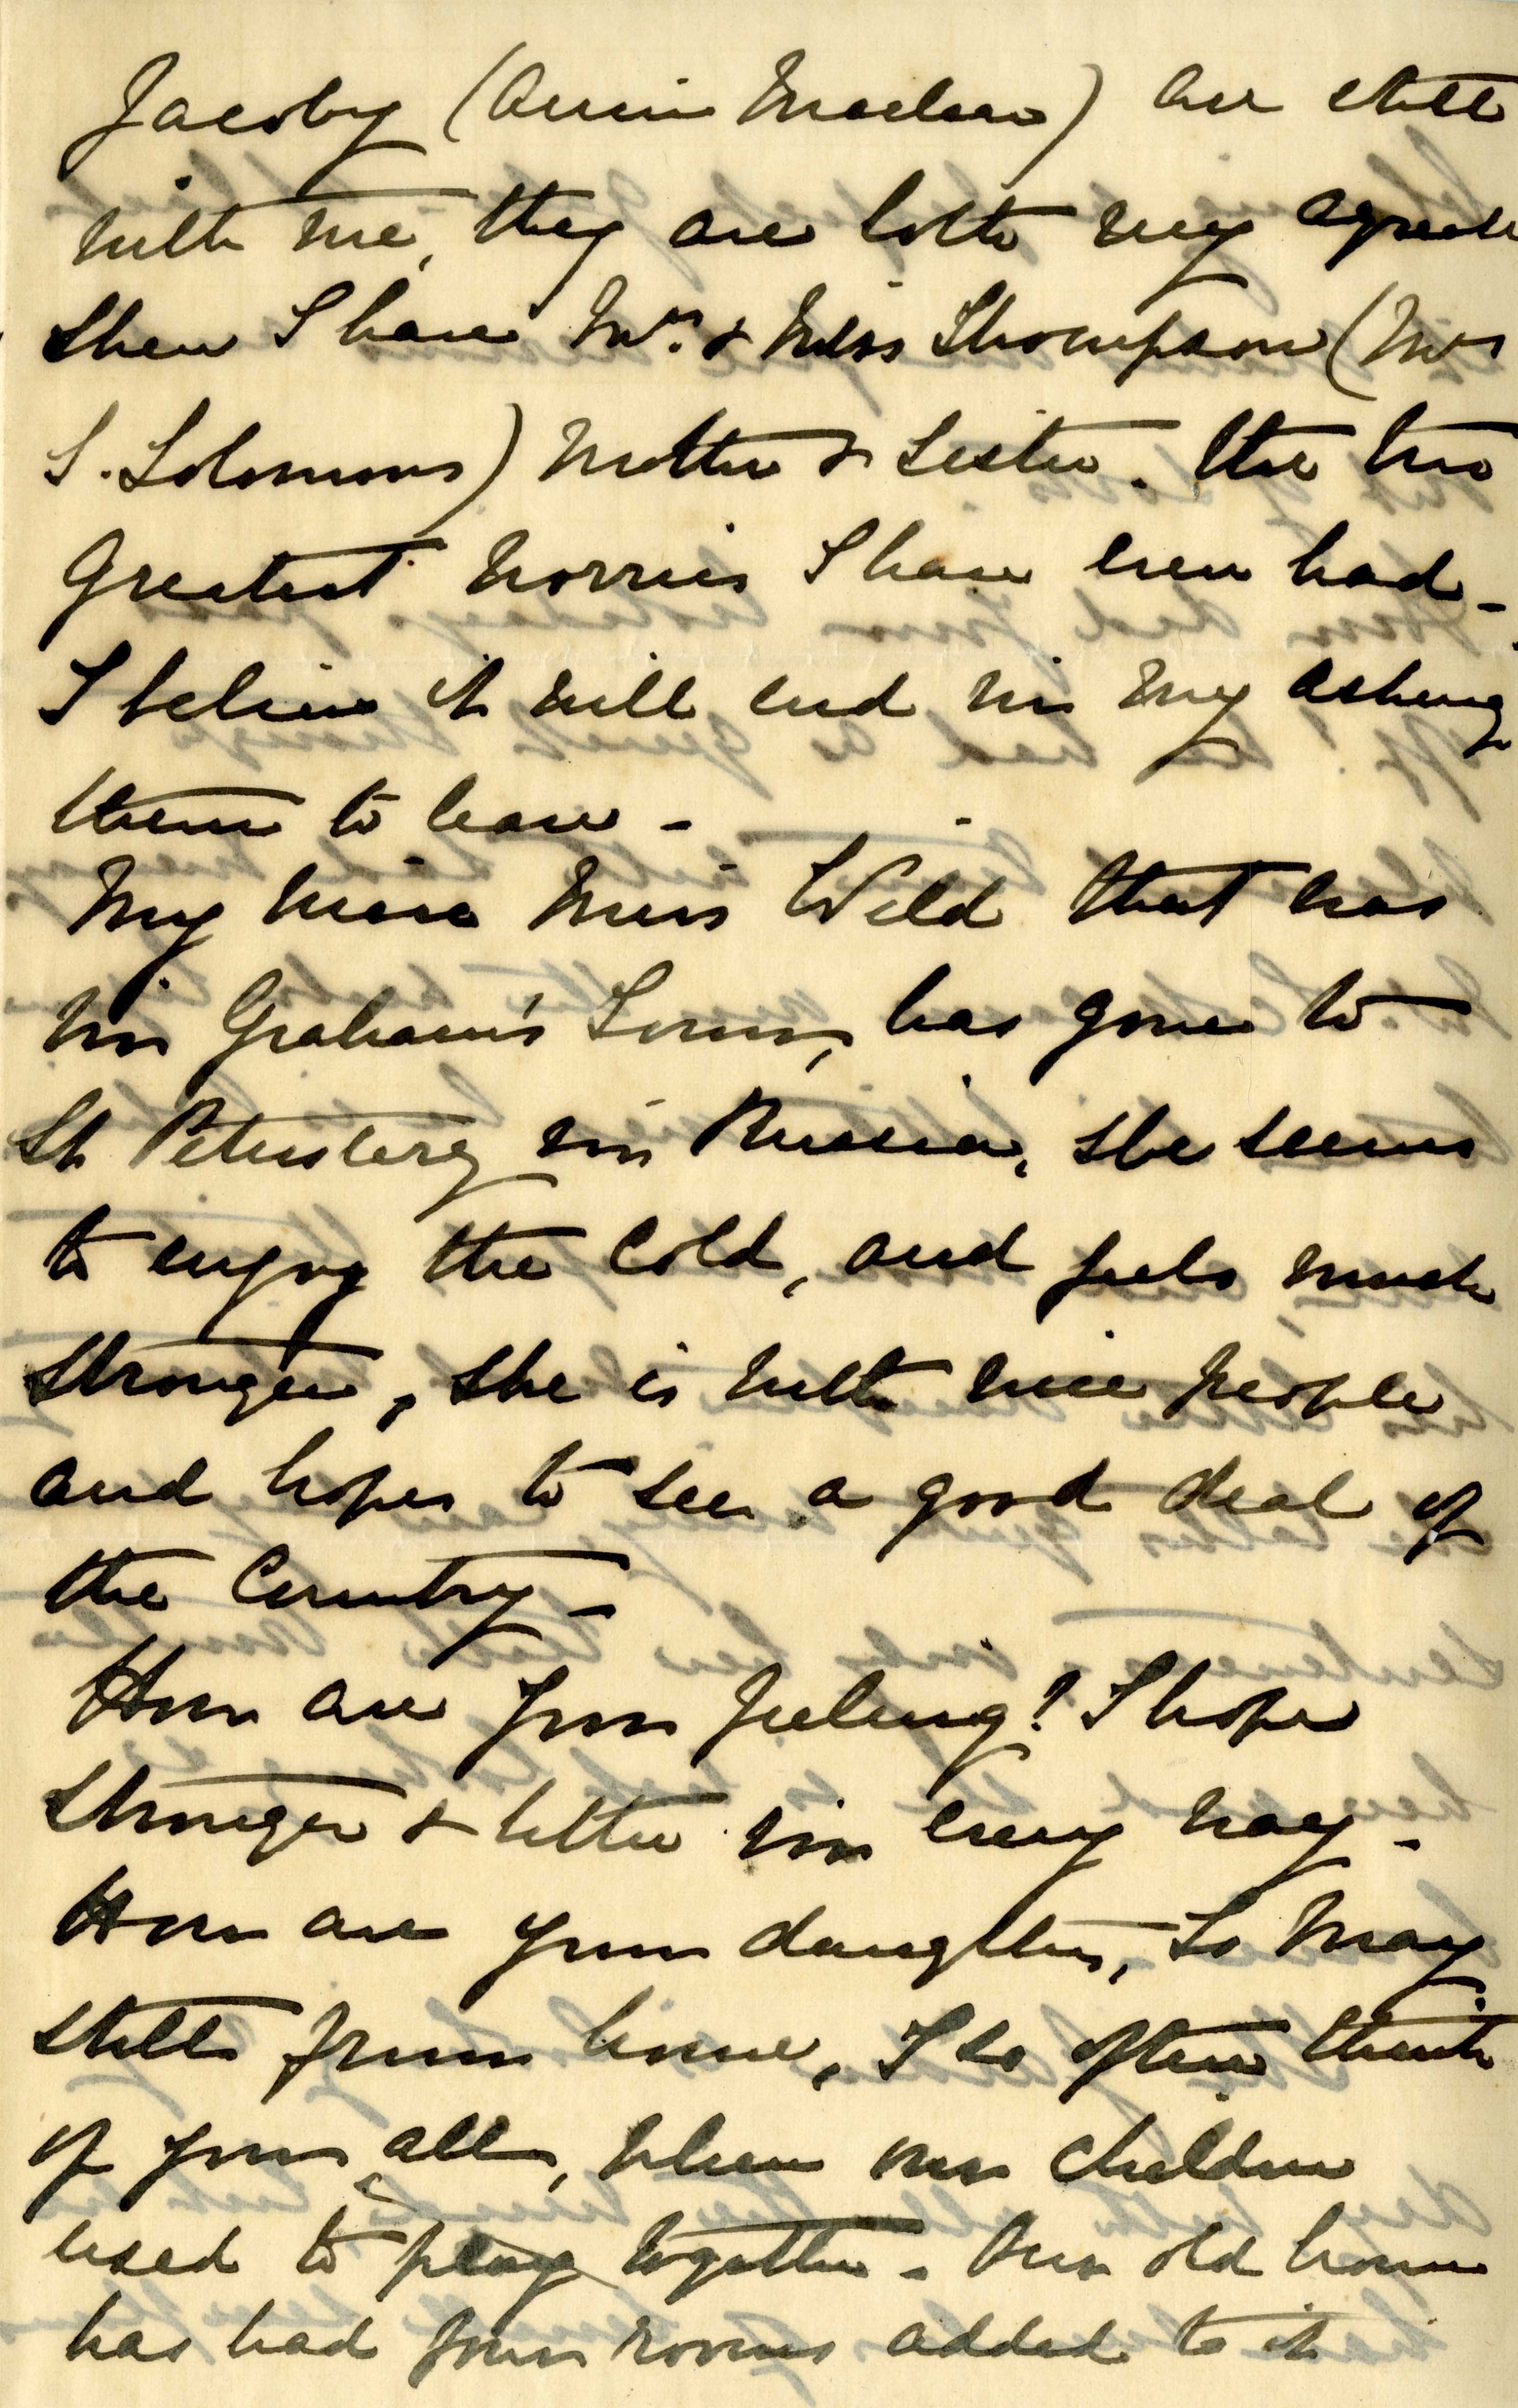 Jacoby (Annie Maclean) are still
with me, they are both very agreeable
then I have Mrs. & Miss Thompson (Mrs
S. Solomons) Mother & Sister. the two
Greatest worries I have ever had -
I believe it will end in my asking
them to leave -
My niece Miss Wild that was
in Graham's Town, has gone to
St Petersburg in Russia, she seems
to enjoy the Cold, and feels much
stronger, she is with nice people
and hopes to see a good deal of
the Country -
How are you feeling? I hope
Stronger & better in every way -
How are your daughters, Is May
still from home, I so often think
of you all, when our children
used to play together - Our old home
has had four rooms added to it